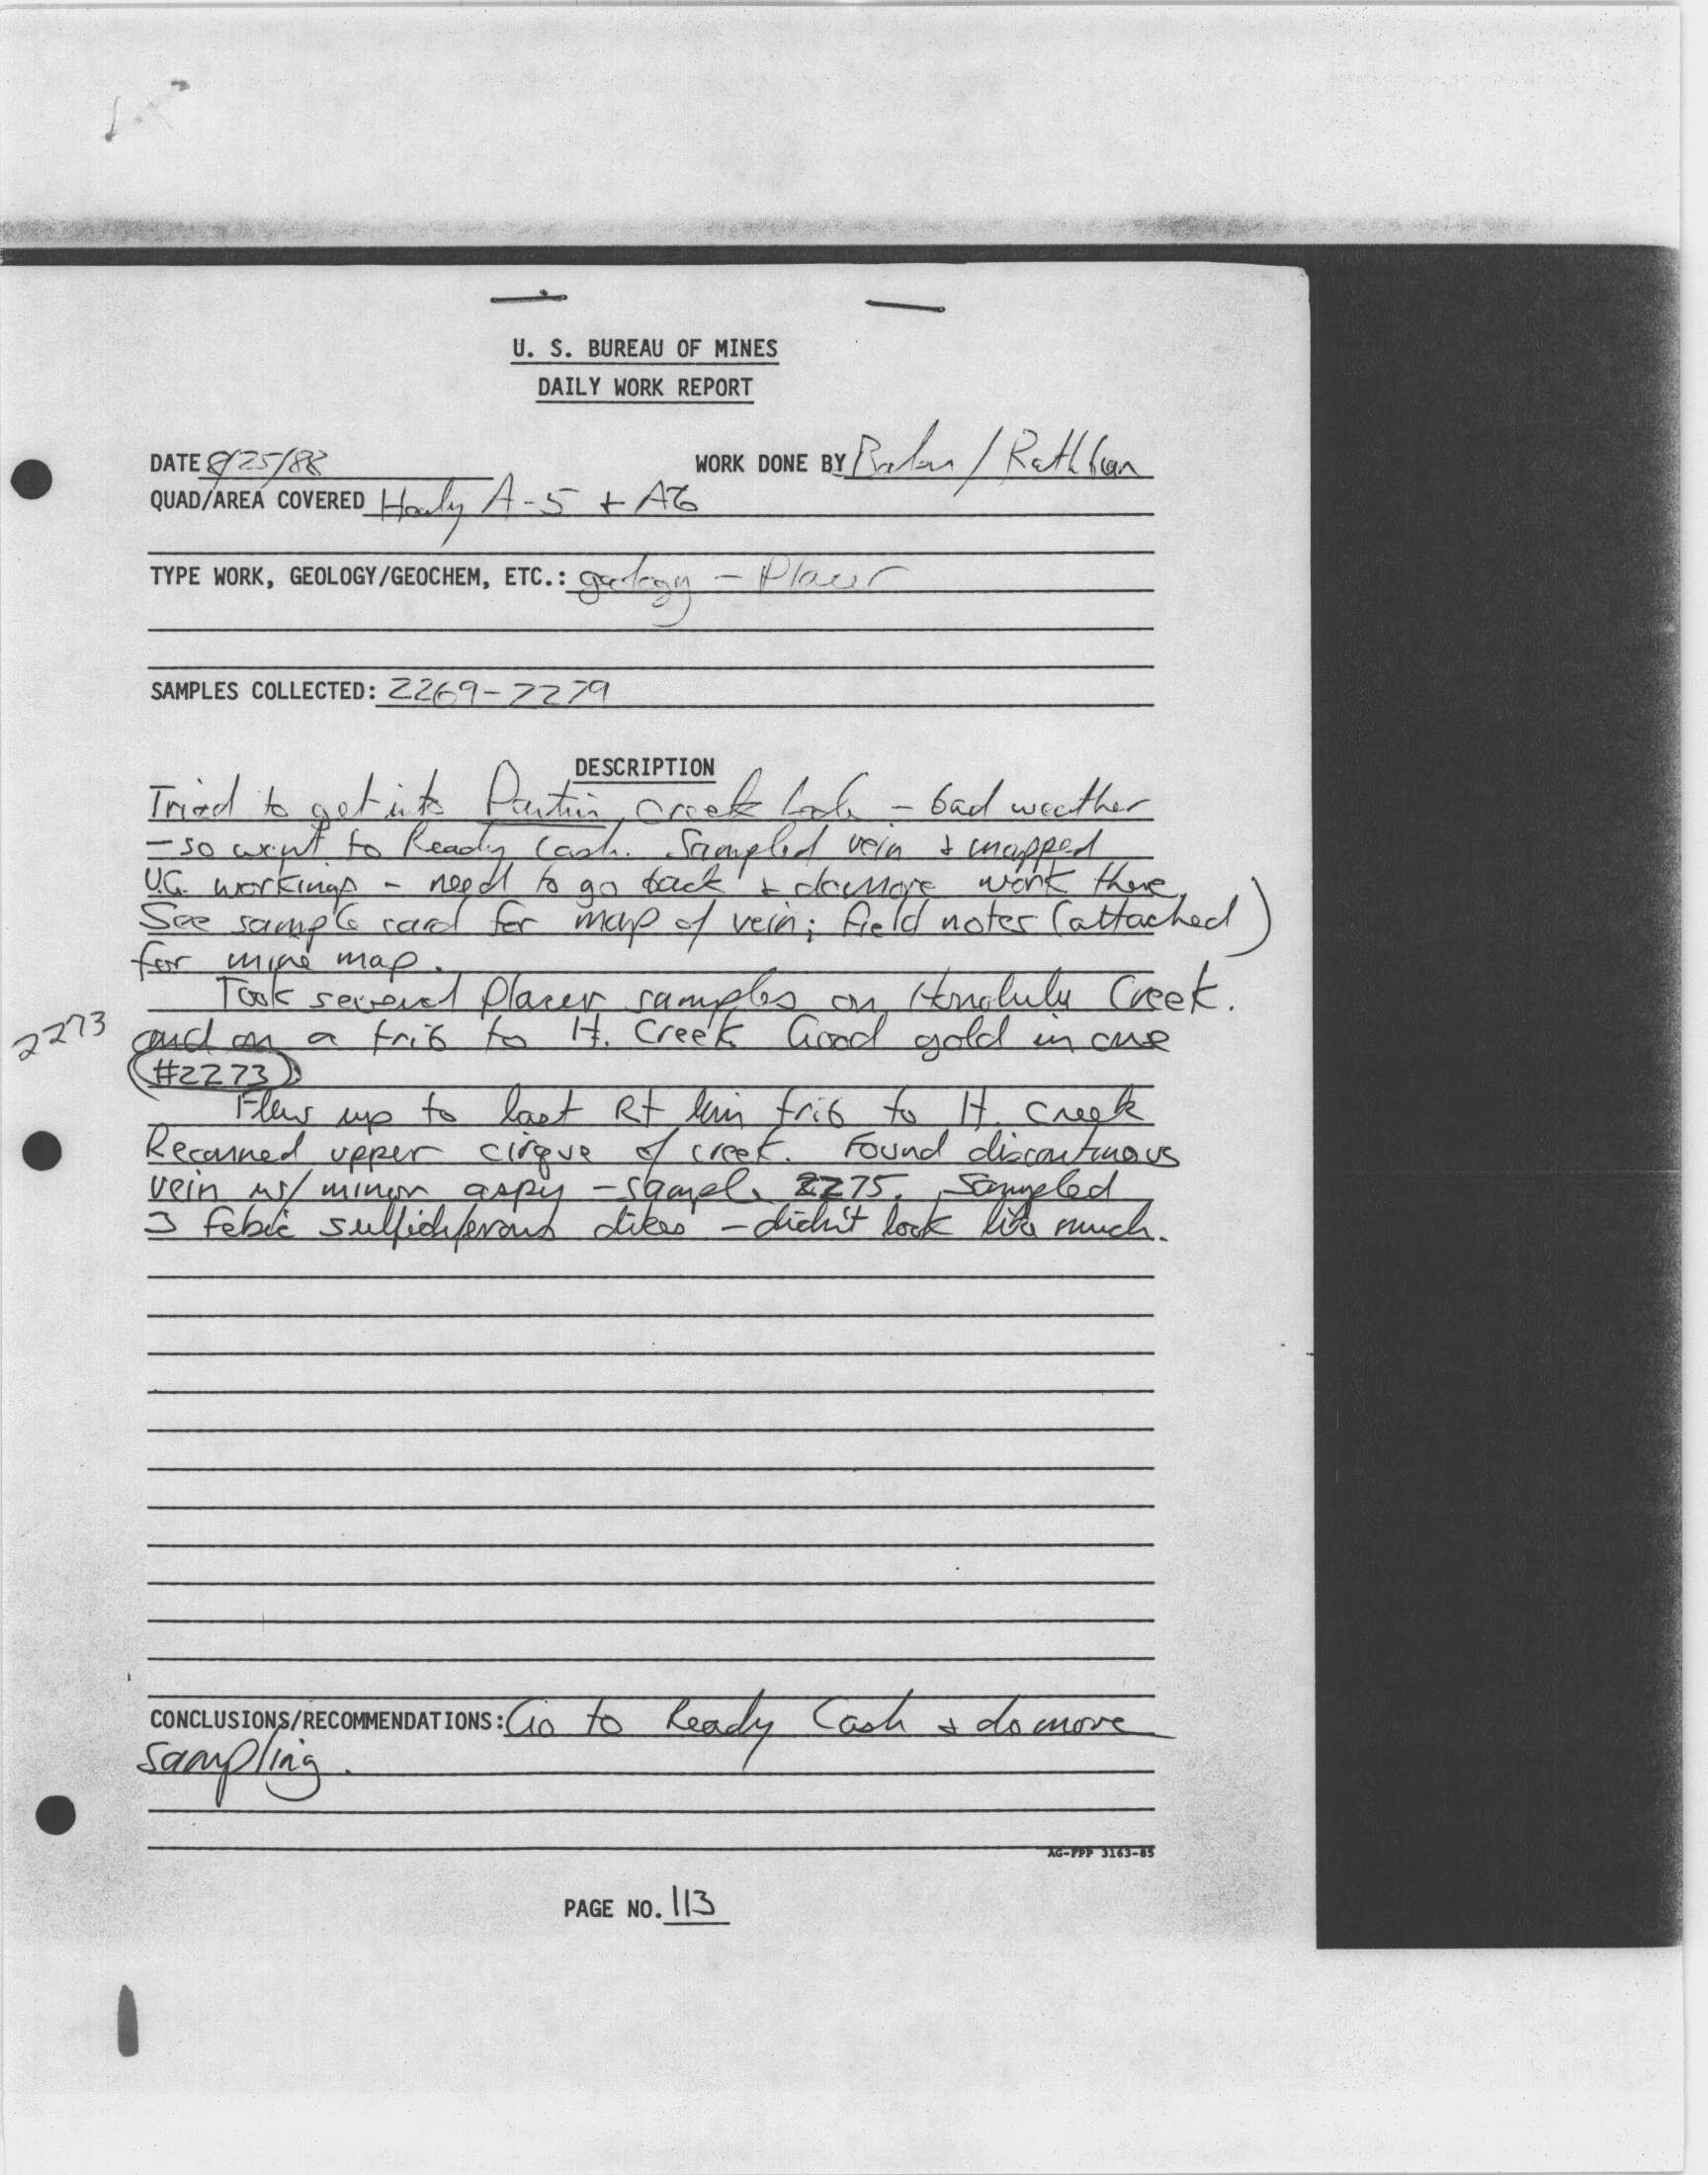 U. S. BUREAU OF MINES
DAILY WORK REPORT
DATE 8/25/88 WORK DONE BY / Rathbun
QUAD/AREA COVERED Healy A-5 + A6
TYPE WORK, GEOLOGY/GEOCHEM, ETC.: geology - Placer
SAMPLES COLLECTED: 2269-2279
DESCRIPTION
Tried to get into Partin Creek Lode - bad weather
- so went to Ready Cash. Sampled vein & mapped
U.G. workings - need to go back & do more work there
See sample card for map of vein; field notes (attached)
for mine map.
Took several placer samples on Honolulu Creek.
2273 and on a trib to H. Creek Good gold in one
(#2273)
Flew up to last Rt lim trib to H. Creek
Reconned upper cirque of creek. Found discontinuous
vein w/ minor aspy - sample 2275. Sampled
3 felsic sulfidiferous dikes - didn't look like much.
CONCLUSIONS/RECOMMENDATIONS: Go to Ready Cash & do more
sampling.
AG-FPP 3163-85
PAGE NO. 113